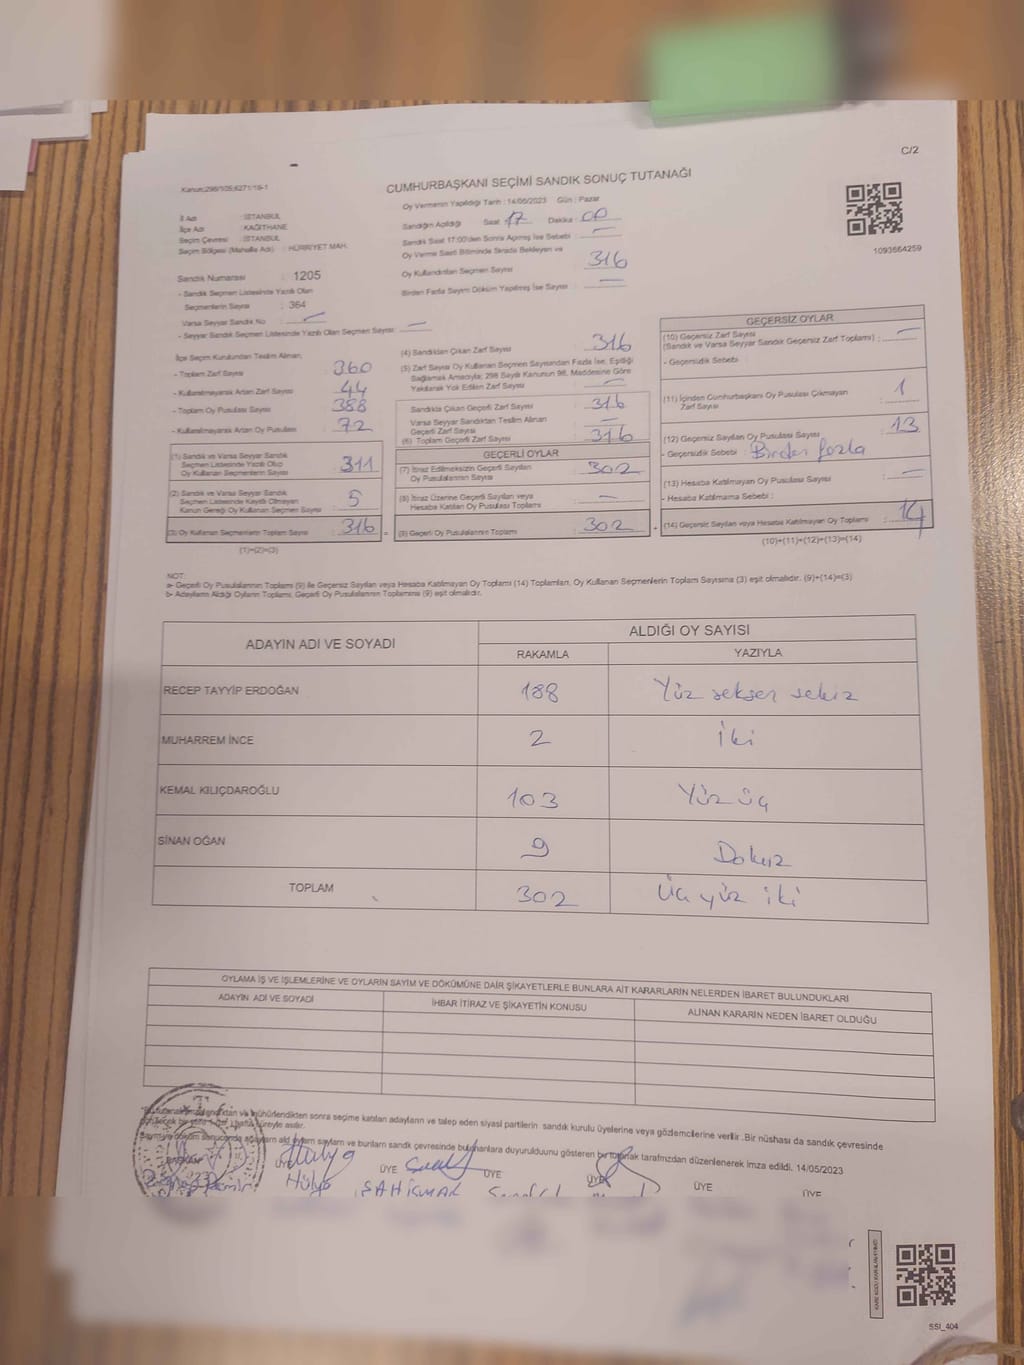 C/2
Kanun:298/105;6271/19-1
CUMHURBAŞKANI SEÇİMİ SANDIK SONUÇ TUTANAĞI
1093664259
İl Adı : İSTANBUL
İlçe Adı : KAĞITHANE
Seçim Çevresi : İSTANBUL
Seçim Bölgesi (Mahalle Adı) : HÜRRİYET MAH.
Sandık Numarası : 1205
- Sandık Seçmen Listesinde Yazılı Olan
Seçmenlerin Sayısı : 364
Varsa Seyyar Sandık No : —
- Seyyar Sandık Seçmen Listesinde Yazılı Olan Seçmen Sayısı : —
Oy Vermenin Yapıldığı Tarih : 14/05/2023 Gün : Pazar
Sandığın Açıldığı Saat 17 Dakika : 00
Sandık Saat 17:00'den Sonra Açılmış İse Sebebi : —
Oy Verme Saati Bitiminde Sırada Bekleyen ve
Oy Kullandırılan Seçmen Sayısı : 316
Birden Fazla Sayım Döküm Yapılmış İse Sayısı : —
İlçe Seçim Kurulundan Teslim Alınan;
- Toplam Zarf Sayısı : 360
- Kullanılmayarak Artan Zarf Sayısı : 44
- Toplam Oy Pusulası Sayısı : 388
- Kullanılmayarak Artan Oy Pusulası : 72
(1) Sandık ve Varsa Seyyar Sandık
Seçmen Listesinde Yazılı Olup
Oy Kullanan Seçmenlerin Sayısı : 311
(2) Sandık ve Varsa Seyyar Sandık
Seçmen Listesinde Kayıtlı Olmayan
Kanun Gereği Oy Kullanan Seçmen Sayısı : 5
(3) Oy Kullanan Seçmenlerin Toplam Sayısı : 316
(1)+(2)=(3)
(4) Sandıktan Çıkan Zarf Sayısı : 316
(5) Zarf Sayısı Oy Kullanan Seçmen Sayısından Fazla İse, Eşitliği
Sağlamak Amacıyla; 298 Sayılı Kanunun 98. Maddesine Göre
Yakılarak Yok Edilen Zarf Sayısı : —
Sandıkta Çıkan Geçerli Zarf Sayısı : 316
Varsa Seyyar Sandıktan Teslim Alınan
Geçerli Zarf Sayısı : —
(6) Toplam Geçerli Zarf Sayısı : 316
GEÇERLİ OYLAR
(7) İtiraz Edilmeksizin Geçerli Sayılan
Oy Pusulalarının Sayısı : 302
(8) İtiraz Üzerine Geçerli Sayılan veya
Hesaba Katılan Oy Pusulası Toplamı : —
(9) Geçerli Oy Pusulalarının Toplamı : 302
GEÇERSİZ OYLAR
(10) Geçersiz Zarf Sayısı
(Sandık ve Varsa Seyyar Sandık Geçersiz Zarf Toplamı) : —
- Geçersizlik Sebebi :
(11) İçinden Cumhurbaşkanı Oy Pusulası Çıkmayan
Zarf Sayısı : 1
(12) Geçersiz Sayılan Oy Pusulası Sayısı : 13
- Geçersizlik Sebebi : Birden fazla
(13) Hesaba Katılmayan Oy Pusulası Sayısı : —
- Hesaba Katılmama Sebebi :
(14) Geçersiz Sayılan veya Hesaba Katılmayan Oy Toplamı : 14
(10)+(11)+(12)+(13)=(14)
NOT:
a- Geçerli Oy Pusulalarının Toplamı (9) ile Geçersiz Sayılan veya Hesaba Katılmayan Oy Toplamı (14) Toplamları, Oy Kullanan Seçmenlerin Toplam Sayısına (3) eşit olmalıdır. (9)+(14)=(3)
b- Adayların Aldığı Oyların Toplamı, Geçerli Oy Pusulalarının Toplamına (9) eşit olmalıdır.
ADAYIN ADI VE SOYADI ALDIĞI OY SAYISI
RAKAMLA YAZIYLA
RECEP TAYYİP ERDOĞAN 188 Yüz seksen sekiz
MUHARREM İNCE 2 İki
KEMAL KILIÇDAROĞLU 103 Yüz üç
SİNAN OĞAN 9 Dokuz
TOPLAM 302 Üç yüz iki
OYLAMA İŞ VE İŞLEMLERİNE VE OYLARIN SAYIM VE DÖKÜMÜNE DAİR ŞİKAYETLERLE BUNLARA AİT KARARLARIN NELERDEN İBARET BULUNDUKLARI
ADAYIN ADI VE SOYADI İHBAR İTİRAZ VE ŞİKAYETİN KONUSU ALINAN KARARIN NEDEN İBARET OLDUĞU
sonra seçime katılan adayların ve talep eden siyasi partilerin sandık kurulu üyelerine veya gözlemcilerine verilir .Bir nüshası da sandık çevresinde
bunların sandık çevresinde bulunanlara duyurulduunu gösteren bu tutanak tarafımızdan düzenlenerek imza edildi. 14/05/2023
BAŞKAN ÜYE ÜYE ÜYE ÜYE ÜYE ÜYE
Hülya
SSİ_404